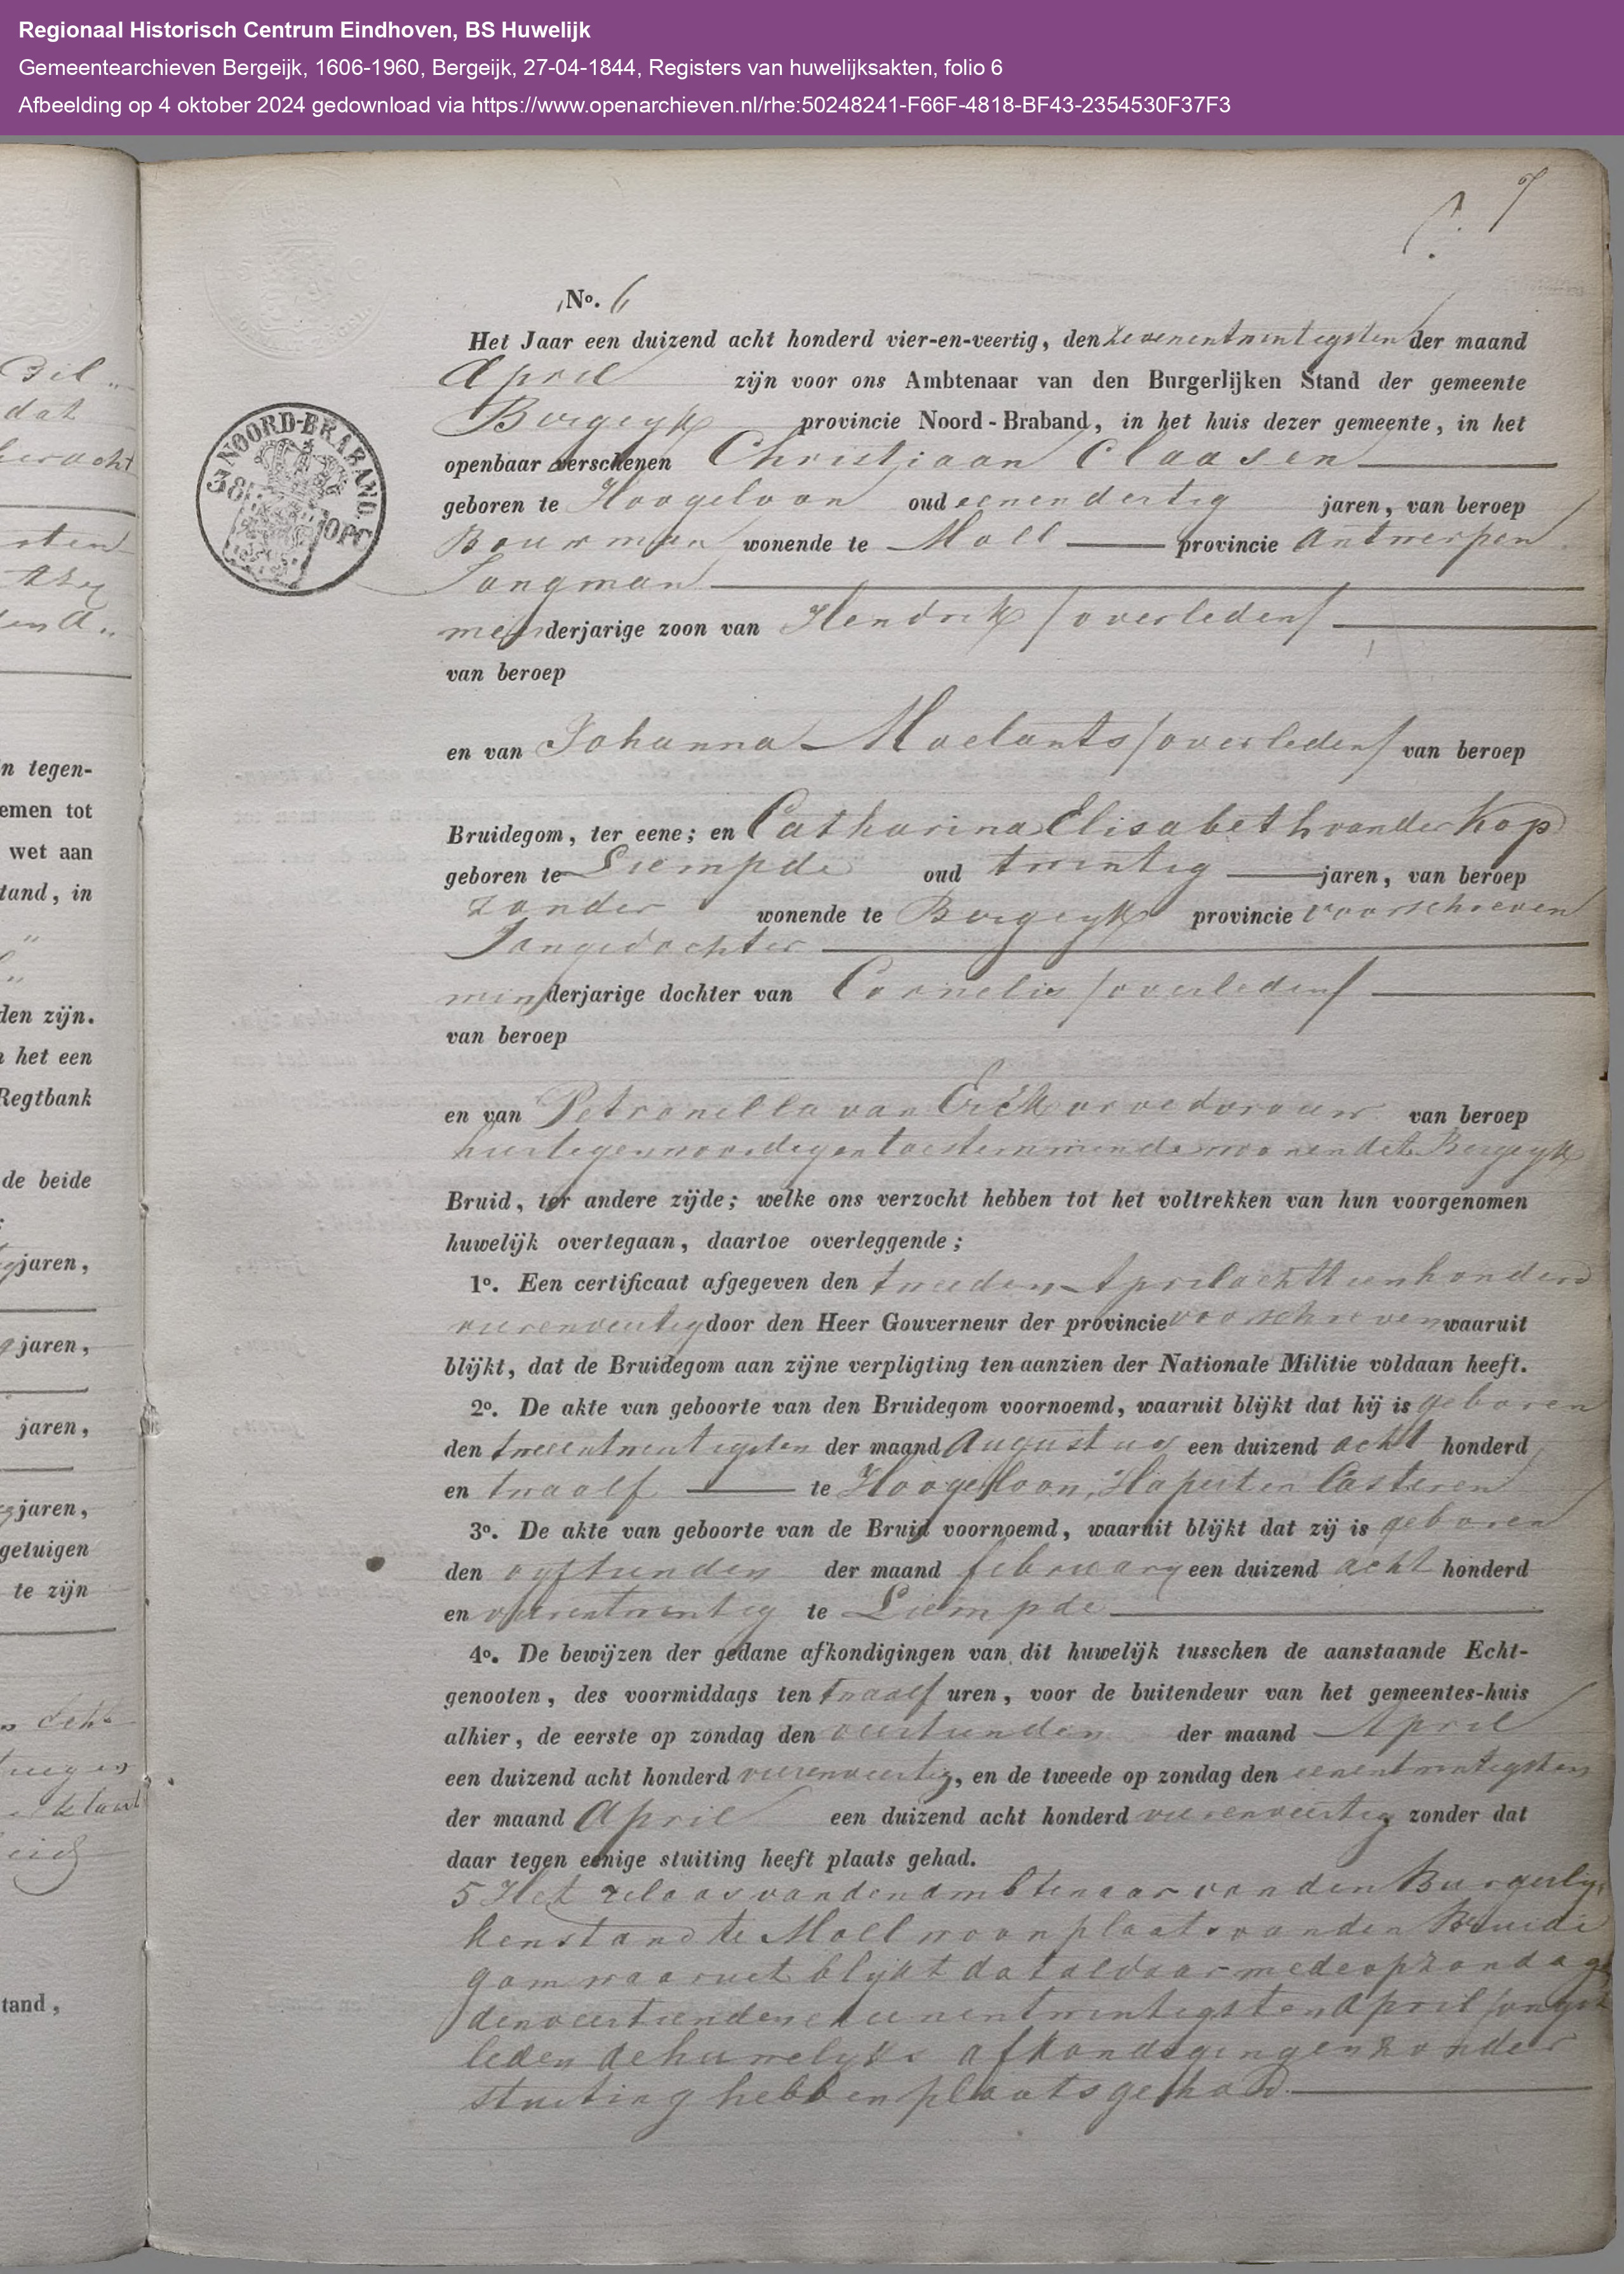 Regionaal Historisch Centrum Eindhoven, BS Huwelijk
Gemeentearchieven Bergeijk, 1606-1960, Bergeijk, 27-04-1844, Registers van huwelijksakten, folio 6
Afbeelding op 4 oktober 2024 gedownload via https://www.openarchieven.nl/rhe:50248241-F66F-4818-BF43-2354530F37F3
7
No. 6
Het Jaar een duizend acht honderd vier-en-veertig, den zevenentwintigsten der maand
April zijn voor ons Ambtenaar van den Burgerlijken Stand der gemeente
Bergeyk provincie Noord-Braband, in het huis dezer gemeente, in het
openbaar verschenen Christiaan Claasen
geboren te Hoogeloon oud eenendertig jaren, van beroep
Bouwman wonende te Moll provincie Antwerpen
Jongman
meerderjarige zoon van Hendrik /overleden/
van beroep
en van Johanna Moelants /overleden/ van beroep
Bruidegom, ter eene; en Catharina Elisabeth vander Kop
geboren te Liempde oud twintig jaren, van beroep
zonder wonende te Bergeyk provincie voorschreven
Jongedochter
minderjarige dochter van Cornelis /overleden/
van beroep
en van Petronella van Eick weduwe van beroep
hier tegenwoordig en toestemmende woonende te Bergeyk
Bruid, ter andere zijde; welke ons verzocht hebben tot het voltrekken van hun voorgenomen
huwelijk overtegaan, daartoe overleggende;
1o. Een certificaat afgegeven den tweeden April achttienhonderd
vierenveertig door den Heer Gouverneur der provincie voorschreven waaruit
blijkt, dat de Bruidegom aan zijne verpligting ten aanzien der Nationale Militie voldaan heeft.
2o. De akte van geboorte van den Bruidegom voornoemd, waaruit blijkt dat hij is geboren
den tweeentwintigsten der maand Augustus een duizend acht honderd
en twaalf te Hoogeloon, Hapert en Casteren
3o. De akte van geboorte van de Bruid voornoemd, waaruit blijkt dat zij is geboren
den vyftienden der maand february een duizend acht honderd
en vierentwintig te Liempde
4o. De bewijzen der gedane afkondigingen van dit huwelijk tusschen de aanstaande Echt-
genooten, des voormiddags ten twaalf uren, voor de buitendeur van het gemeentes-huis
alhier, de eerste op zondag den veertienden der maand April
een duizend acht honderd vierenveertig, en de tweede op zondag den eenentwintigsten
der maand April een duizend acht honderd vierenveertig zonder dat
daar tegen eenige stuiting heeft plaats gehad.
5 Het relaas van den ambtenaar van den Burgerly
kenstand te Moll woonplaats van den Bruide
gom waaruit blykt dat aldaar mede op zondag
den veertienden en eenentwintigsten April jongst
leden de huwelyks afkondigingen zonder
stuiting hebben plaats gehad.
NOORD-BRABAND.
38
OPC
Bil
dat
sten
n tegen-
emen tot
wet aan
tand, in
den zijn.
het een
Regtbank
de beide
jaren,
jaren,
jaren,
jaren,
getuigen
te zijn
tand,